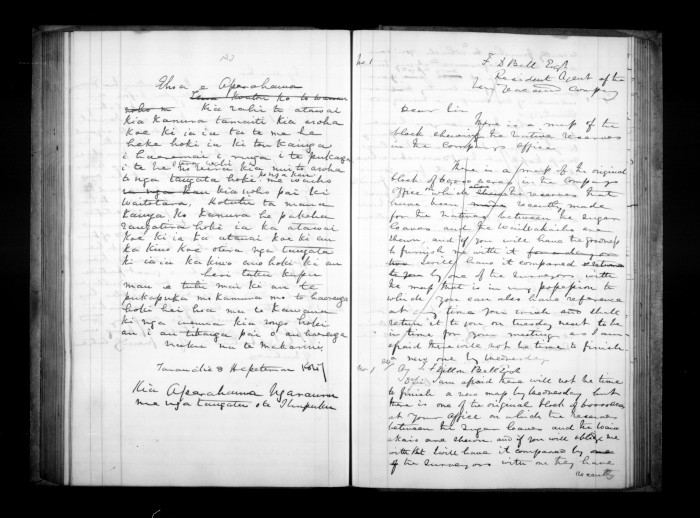 Ehoa e Aparahama
Kia rahi te atawai
kia Kanura tamaiti kia aroha
koe ki ia ta te mea he
heke hoki ia ki tou kainga
i haeremai i runga i te pukapuka
i te he
o nga tangata hoki
kia noho pai ki
Waitotara. Kotahi ta maua
kainga ko Kanura he pakeha
rangatira hoki ia ka atawai
koe ki ia ka atawai koe ki au
ka kino koe otira nga tangata
ki ia ka kino ano hoki ki au
heoi tatu kapu
mau e tuhi mai ki au te
pukapuka mo Kanura mo to haerenga
hoki hei hoa mo te Kawana
ki nga whenua kia rongo hoki
au i au tikanga pai o au haerenga
naku na te Makarini
Taranaki 8 Hepetema
Kia Aparahama Ngarauru
me nga tangata ote Ihupuku
No 1
F D Bell Esqr
Resident Agent of the
New Zealand Company
Dear Sir
There is a map of the
block shewing the Native reserves
in the Companys Office
There is a map of the original
block of 60,000 acres in the Companys
Office which shews the reserves that
have been recently made
for the Natives between the Sugar
Loaves and the Waiwakaiho are
shewn, and if you will have the goodness
to furnish me with it for a day or
two I will have it compared
by one of the Surveyors with
the map that is in my possession to
which you can also have reference
at any time you wish and shall
return it to you on Tuesday next to be
in time for your meeting as I am
afraid there will not be time to finish
a new one by Wednesday
No 1
F Dillon Bell Esq
Sir, I am afraid there will not be time
to finish a new map by Wednesday but
there is one of the original block of 60,000 acres
at your office on which the reserves
between the Sugar Loaves and the Waiw
akaio are shewn and if you will oblige me
with it I will have it compared by one
of the Surveyors with one they have
recently